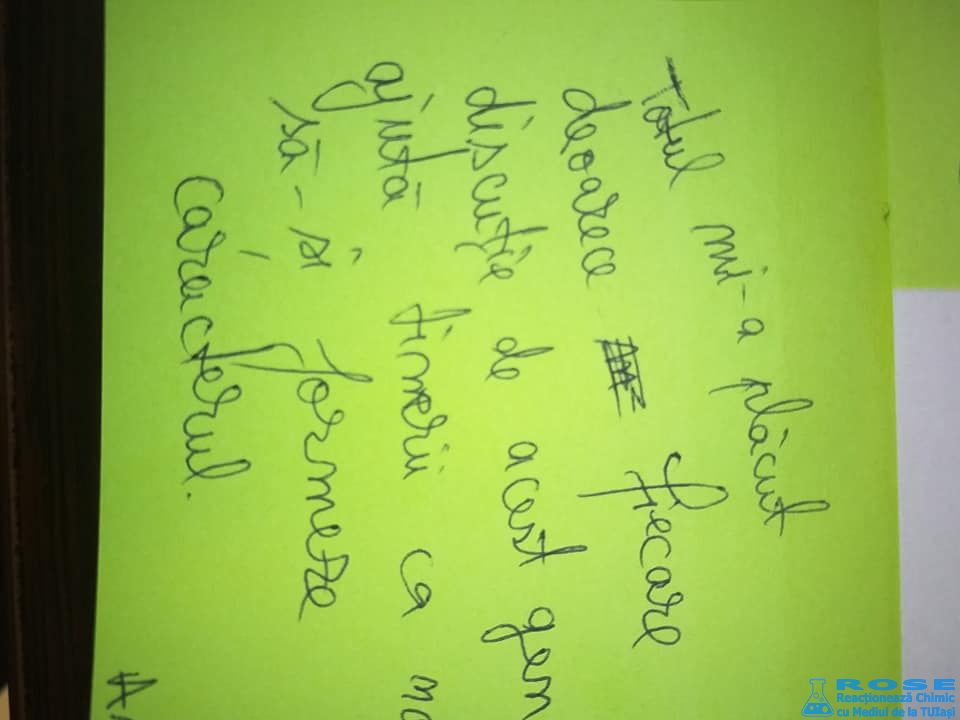 Totul mi-a plăcut
deoarece fiecare
discuție de acest gen
ajută tinerii ca
să-și formeze
caracterul.
ROSE
Reacționează Chimic
cu Mediul de la TUIași